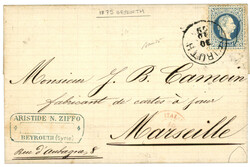 1875 BEYROUTH
BEYRUTH
Monsieur J. B. Camoin
fabricant de cartes à jouer
Marseille
ARISTIDE N. ZIFFO
BEYROUTH (Syrie)
Rue d'Aubagne, 8